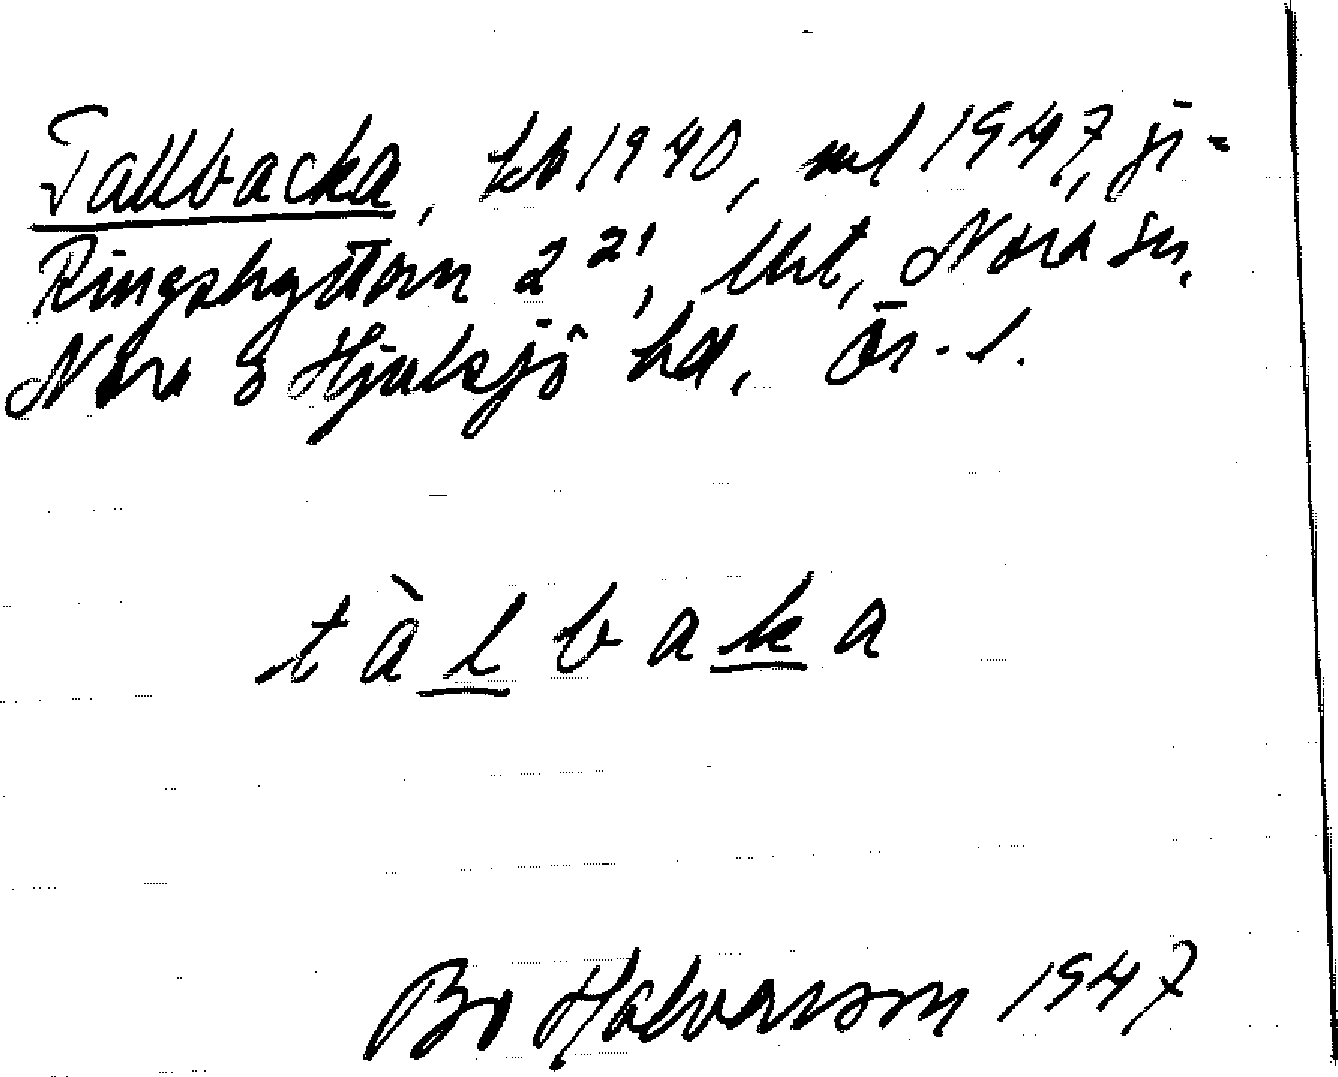 Tallbacka, kb 1940, ml 1947, ji-
Ringshyttan 2²¹, lht, Nora sn,
Nora & Hjulsjö hd, Ör. l.
tàlbaka
Bo Halvarsson 1947